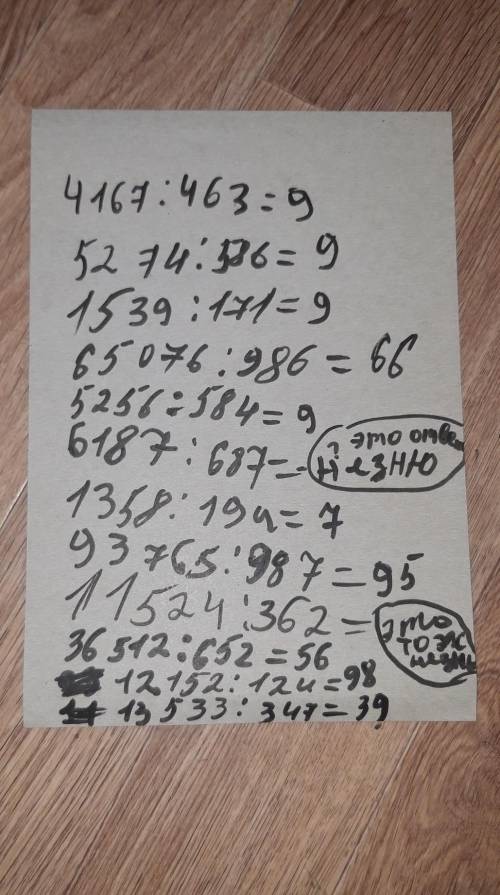 4167:463=9
5274:586=9
1539:171=9
65076:986=66
5256:584=9
6187:687= это
незню
1358:194=7
93765:987=95
11524:362= это
тоэж
36512:652=56
12152:124=98
13533:347=39